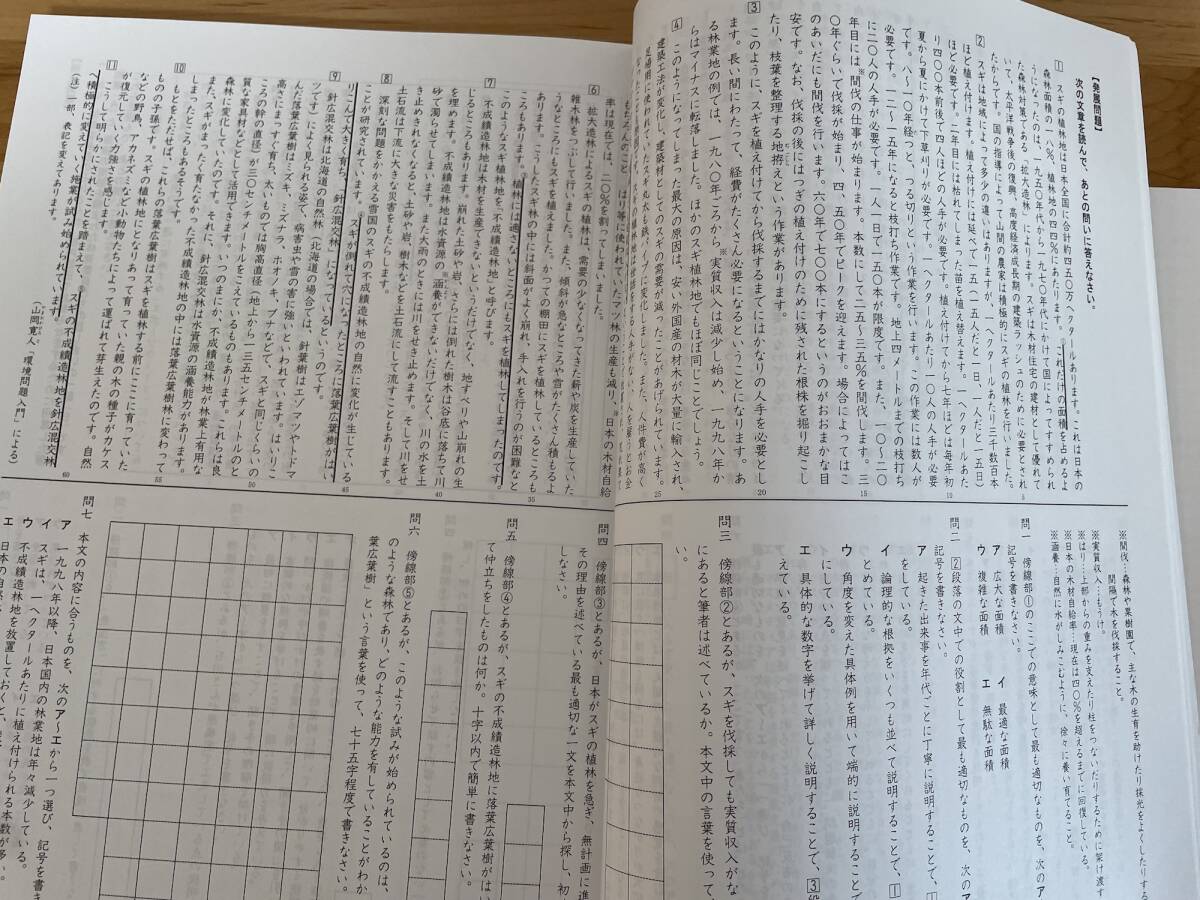 【発展問題】
次の文章を読んで、あとの問いに答えなさい。
1 スギの植林地は日本全国に合計約四五〇万ヘクタールあります。これは日本の
森林面積の一八%、植林地の四四%にあたります。①これだけの面積を占めるよ
うになったのは、一九五〇年代から一九七〇年代にかけて国によってすすめられ
た森林対策である「拡大造林」によります。スギは木材住宅の建材として優れて
いて、太平洋戦争後の復興、高度経済成長期の建築ラッシュのために必要とされ
たからです。国の指導によって山間の農家は積極的にスギの植林を行いました。
2 スギは地域によって多少の違いはありますが、一ヘクタールあたり三千数百本
ほど植え付けます。植え付けには延べで一五人(一五人だと一日、一人だと一五日)
ほど必要です。二年目には枯れてしまった苗を植え替えます。一ヘクタールあた
り四〇〇本前後で四人ほどの人手が必要です。植え付けてから七年ほどは毎年初
夏から夏にかけて下草刈りが必要です。一ヘクタールあたり一〇人の人手が必要
です。八〜一〇年経つと、つる切りという作業を行います。この作業には数人が
必要です。一二〜一五年になると枝打ち作業です。地上四メートルまでの枝打ち
に二〇人の人手が必要です。一人一日で一五〇本が限度です。また、一〇〜二〇
年目には※間伐の仕事が始まります。本数にして二五〜三五%を間伐します。三
〇年ぐらいで伐採が始まり、四、五〇年でピークを迎えます。場合によってはこ
のあいだにも間伐を行います。六〇年で七〇〇本にするというのがおおまかな目
安です。なお、伐採の後にはつぎの植え付けのために残された根株を掘り起こし
たり、枝葉を整理する地拵えという作業があります。
3 このように、スギを植え付けてから伐採するまでにはかなりの人手を必要とし
ます。長い間にわたって、経費がたくさん必要になるということになります。あ
る林業地の例では、一九八〇年ごろから※実質収入は減少し始め、一九九八年か
らはマイナスに転落しました。ほかのスギ植林地でもほぼ同じことでしょう。
4 このようになってしまった最大の原因は、安い外国産の材木が大量に輸入され、
建築工法が変化し、建築材としてのスギの需要が減ったことがあげられています。
6 拡大造林によるスギの植林は、需要の少なくなってきた薪や炭を生産していた
雑木林をつぶして行いました。また、傾斜が急なところや雪がたくさん積もるよ
うなところにもスギを植えました。かつての棚田にスギを植林しているところも
あります。こうしたスギ林の中には斜面がよく崩れ、手入れを行うのが困難なと
ころもあります。③植林には適さないところにもスギを植林してしまったのです。
このようなスギ植林地を「不成績造林地」と呼びます。
7 不成績造林地は木材を生産できないというだけでなく、地すべりや山崩れの生
じるところもあります。崩れた土砂や岩、さらには倒れた樹木は谷底に落ちて川
を埋めます。不成績造林地は水資源の※涵養ができないだけでなく、川の水を土
砂で濁らせてしまいます。また大雨のときには川をせき止めます。そして川をせ
き止めきれなくなると、土砂や岩、樹木などを土石流にして流すこともあります。
土石流は下流に大きな災害をもたらします。
8 深刻な問題をかかえる雪国のスギの不成績造林地の自然に変化が生じている
ことが研究されています。④スギが倒れて穴になったところに落葉広葉樹がはい
りこんで大きく育ち、針広混交林になっているというのです。
9 針広混交林は北海道の自然林(北海道の場合では、針葉樹はエゾマツやトドマ
ツです)によく見られる姿で、病害虫や雪の害に強いといわれています。はいりこ
んだ落葉広葉樹はミズキ、ミズナラ、ホオノキ、ブナなどで、スギと同じくらいの
高さにまですっすぐ育ち、太いものでは胸高直径(地上から一三五センチメートルのと
ころの幹の直径)が三〇センチメートルをこえているものもあります。これらは良
質な家具材などとして活用できます。それに、針広混交林は水資源の涵養能力があります。
10 もとをただせば、これらの落葉広葉樹はスギを植林する前にここに育っていた
ものの子孫です。スギの植林地にとなりあって育っていた親の木の種子がカケス
などの野鳥、アカネズミなど小動物たちによって運ばれて芽生えたのです。自然
が復元していく力強さを感じます。
11 こうして明らかにされたことを踏まえて、⑤スギの不成績造林地を針広混交林
へ積極的に変えていく施業が試み始められています。
(山岡寛人・『環境問題入門』による)
(注)一部、表記を変えてあります。
※間伐…森林や果樹園で、主な木の生育を助けたり採光をよくしたりする
間隔で木を伐採すること。
※実質収入…もうけ。
※はり…上部からの重みを支えたり柱をつないだりするために架け渡す
※日本の木材自給率…現在は四〇%を超えるまでに回復している。
※涵養…自然に水がしみこむように、徐々に養い育てること。
問一 傍線部①のここでの意味として最も適切なものを、次のア
記号を書きなさい。
ア 広大な面積 イ 最適な面積
ウ 複雑な面積 エ 無駄な面積
問二 2段落の文中での役割として最も適切なものを、次のア
記号を書きなさい。
ア 起きた出来事を年代ごとに丁寧に説明することで、1
をしている。
イ 論理的な根拠をいくつも並べて説明することで、1
とめている。
ウ 角度を変えた具体例を用いて端的に説明すること
にしている。
エ 具体的な数字を挙げて詳しく説明することで、3段
えている。
問三 傍線部②とあるが、スギを伐採しても実質収入がな
にあると筆者は述べているか。本文中の言葉を使って
い。
問四 傍線部③とあるが、日本がスギの植林を急ぎ、無計画に進
その理由を述べている最も適切な一文を本文中から探し、初
しなさい。
問五 傍線部④とあるが、スギの不成績造林地に落葉広葉樹がはい
て仲立ちをしたものは何か。十字以内で簡単に書きなさい。
問六 傍線部⑤とあるが、このような試みが始められているのは、
のような森林であり、どのような能力を有していることがわか
葉広葉樹」という言葉を使って、七十五字程度で書きなさい。
問七 本文の内容に合うものを、次のア〜エから一つ選び、記号を書き
ア 一九九八年以降、日本国内の林業地は年々減少している。
イ スギは、一ヘクタールあたりに植え付けられる本数が多い
ウ 不成績造林地を放置しておくと、
エ 日本の自然